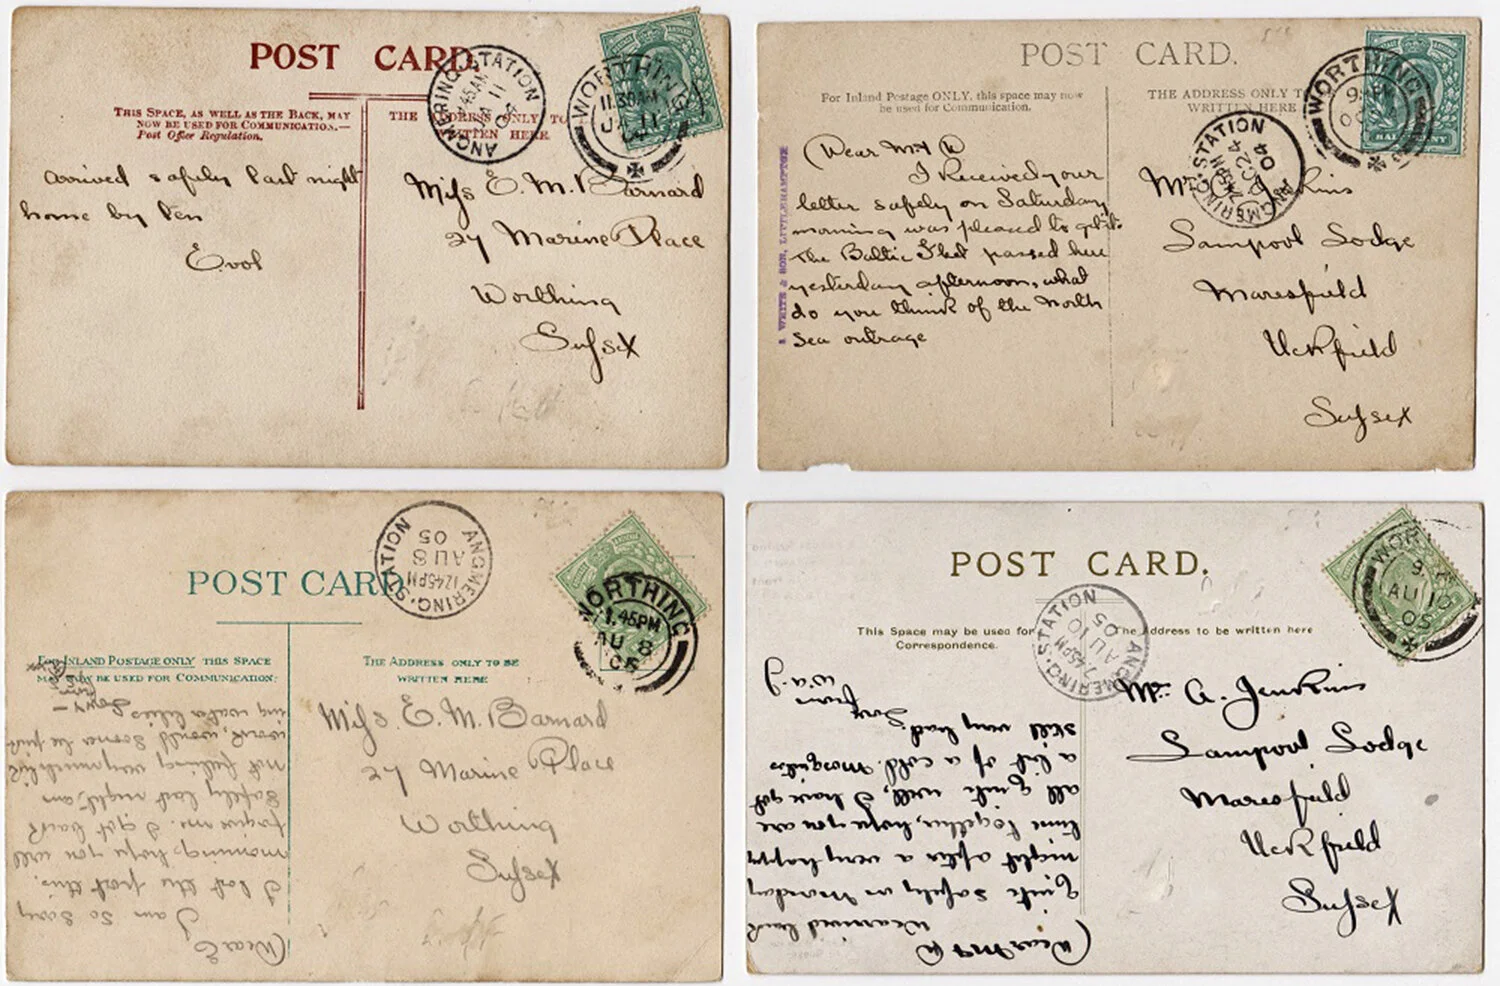 POST CARD.
THIS SPACE, AS WELL AS THE BACK, MAY
NOW BE USED FOR COMMUNICATION.—
Post Office Regulation.
THE ADDRESS ONLY TO
WRITTEN HERE
ANGMERING.STATION
JA 11
WORTHING
11.30AM
JA 11
arrived safely last night
home by ten
Evol
Miss E. M. Barnard
27 Marine Place
Worthing
Sussex
POST CARD.
For Inland Postage ONLY, this space may now
be used for Communication.
THE ADDRESS ONLY T
WRITTEN HERE
WORTHING
ANGMERING.STATION
OC 24
04
WHITE & SON, LITTLEHAMPTON
Dear
I Received your
letter safely on Saturday
morning was pleased to get it.
The Baltic Fleet passed here
yesterday afternoon, what
do you think of the North
Sea outrage
Sampool Lodge
Maresfield
Uckfield
Sussex
POST CARD
FOR INLAND POSTAGE ONLY THIS SPACE
MAY NOW BE USED FOR COMMUNICATION.
THE ADDRESS ONLY TO BE
WRITTEN HERE
ANGMERING.STATION
12.45PM
AU 8
05
WORTHING
1.45PM
AU 8
05
Dear E
I am so sorry
I lost the post this
morning, hope you will
forgive me. I got back
safely last night, am
not feeling very much like
work, would sooner be pick
ing water lilies
Love
from
Miss. E. M. Barnard
27 Marine Place
Worthing
Sussex
POST CARD.
This Space may be used for
Correspondence.
The Address to be written here
ANGMERING.STATION
7.45PM
AU 10
05
WOR
AU 10
05
Dear
We arrived back
quite safely on Monday
night after a very happy
time together, hope you are
all quite well, I have got
a bit of a cold. Mosquitos
still very bad.
Love from
W.a.J
A. Jenkins
Sampool Lodge
Maresfield
Uckfield
Sussex